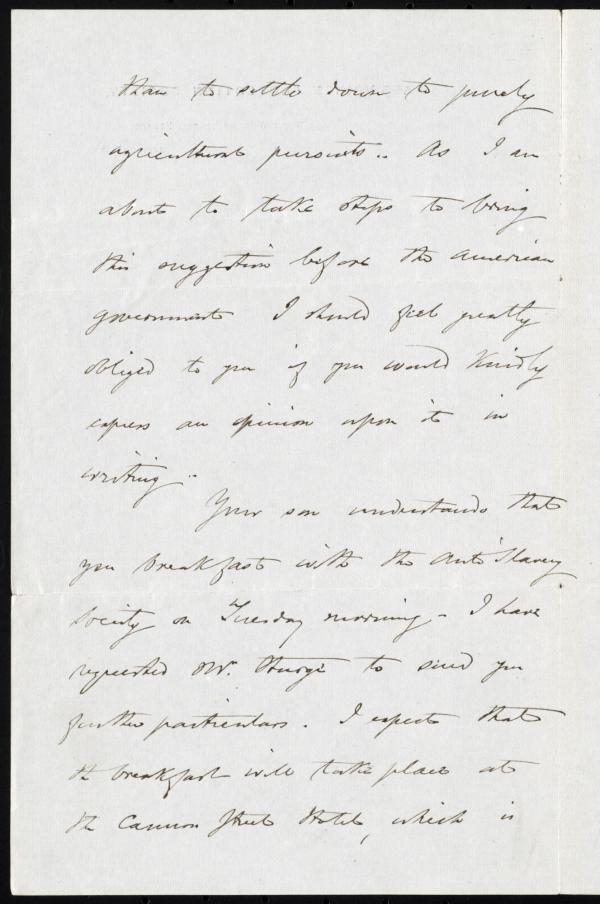 than to settle down to purely
agricultural pursuits. As I am
about to take steps to bring
this suggestion before the American
government I should feel greatly
obliged to you if you would kindly
express an opinion upon it in
writing.
Your son understands that
you breakfast with the Anti Slavery
Society on Tuesday morning - I have
requested Mr. Sturge to send you
further particulars. I expect that
the breakfast will take place at
the Cannon Street Hotel, which is